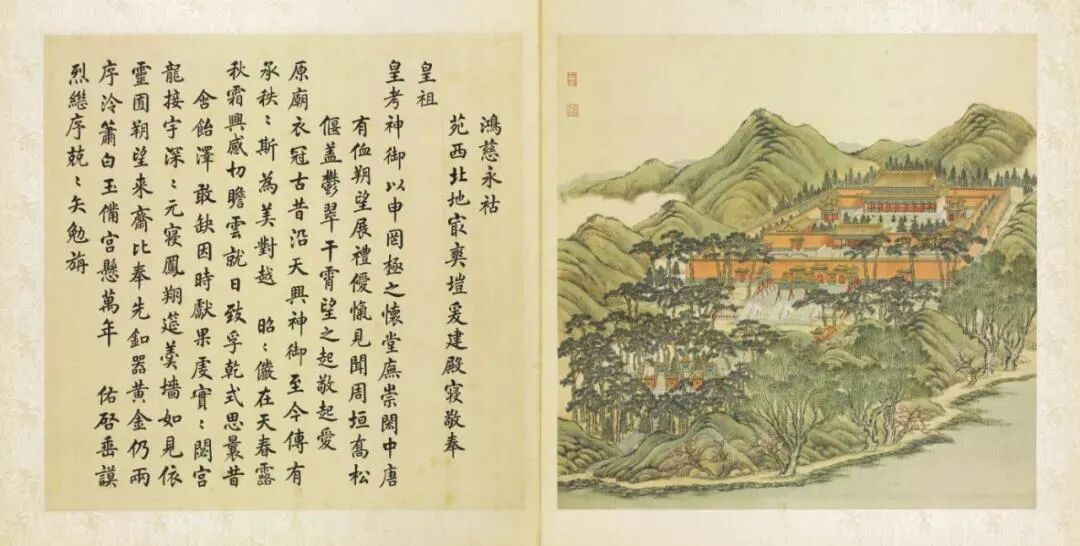 鴻慈永祜
苑西北地㝡爽塏爰建殿寢敬奉
皇祖
皇考神御以申罔極之懷堂廡崇閎中唐
有侐朔望展禮僾愾見聞周垣喬松
偃盖鬱翠干霄望之起敬起愛
原廟衣冠古昔沿天興神御至今傳有
承秩〻斯為美對越 昭〻儼在天春露
秋霜興感切瞻雲就日致孚乾式思曩昔
含飴澤敢缺因時獻果虔實〻閟宮
龍接宇深〻元寢鳳翔筵羹墻如見依
靈囿朔望來齋比奉先釦器黃金仍兩
序泠簫白玉備宮懸萬年 佑啓垂謨
烈繼序兢〻矢勉旃